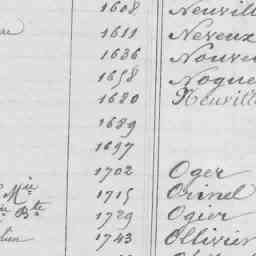 1608 Neuvill
re 1611 Neveux
1636 Nouve
1658 Nogue
1680 Neuvill
1689
1697
1702 Oger
Mie 1715 Orinel
Bte 1729 Ogier
lien 1743 Ollivier